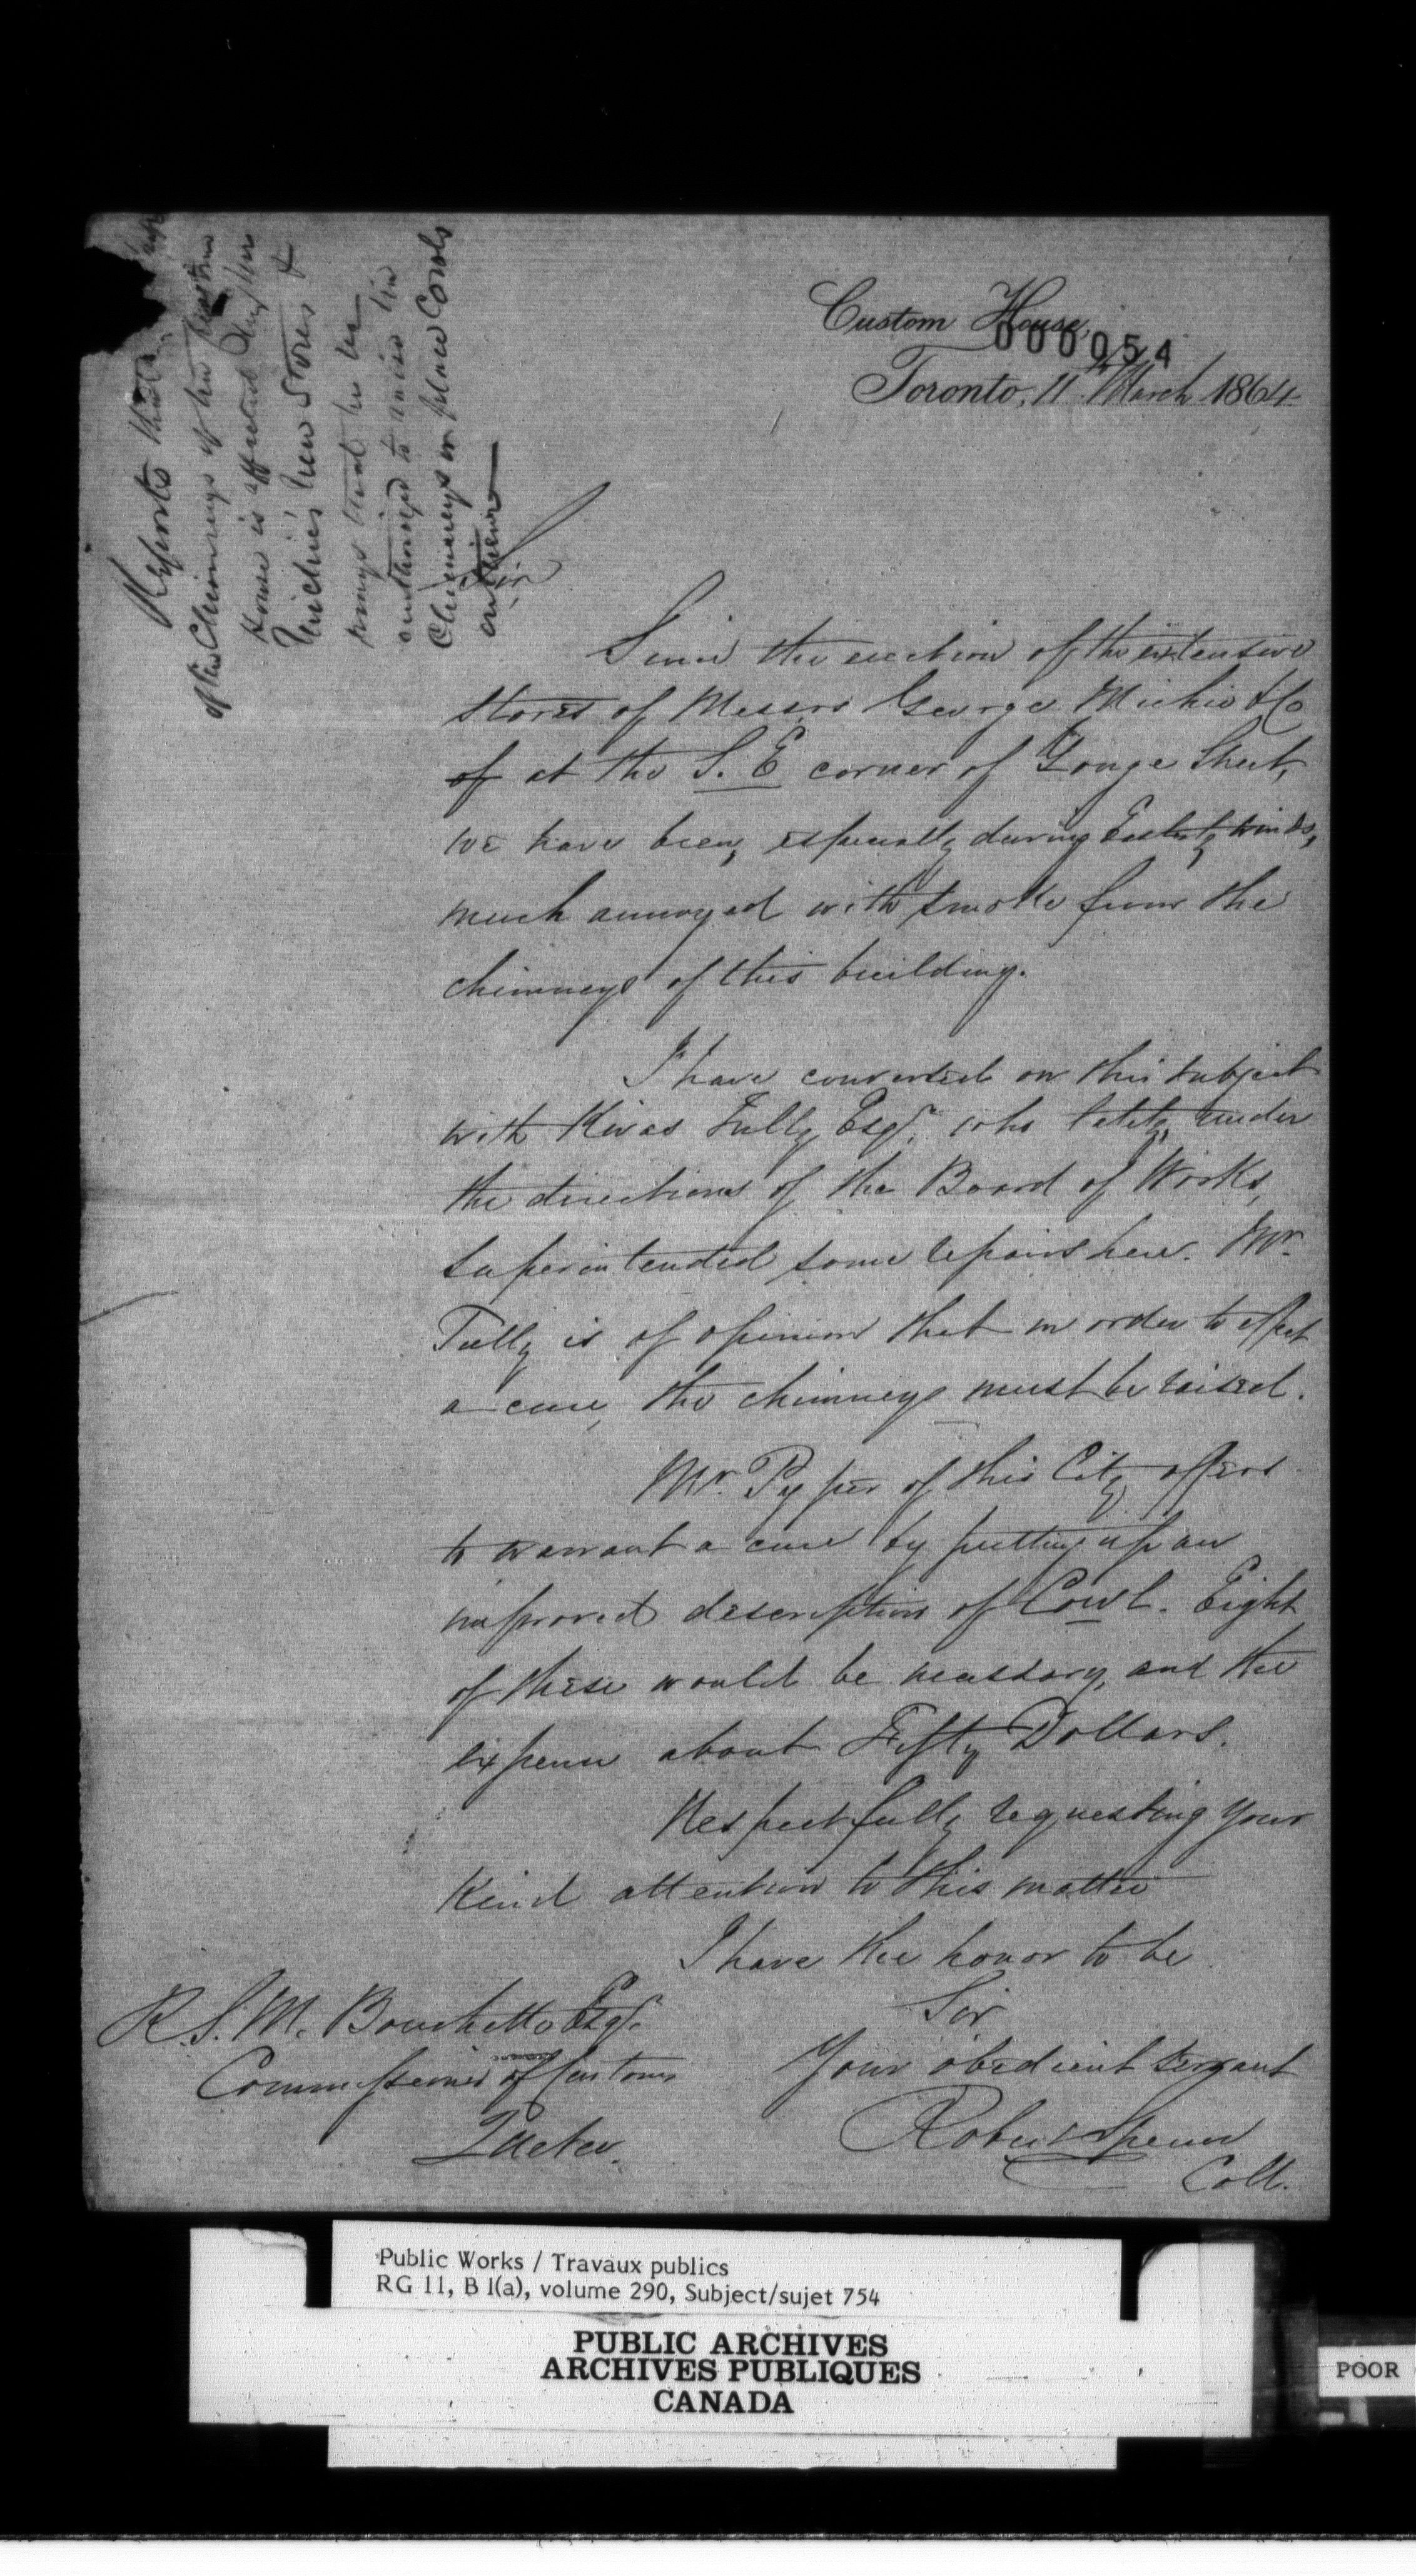 Custom House,
000054
Toronto, 11th March 1864
Reports that
of the Chimneys of the Custom
House is affected by Mr
Michie's New Stores &
prays that he be
authorized to raise the
Chimneys or place Cowls
on them
Sir
Since the erection of the extensive
stores of Messrs George Michie & Co
of at the S. E corner of Yonge Street,
we have been, especially during Easterly winds,
much annoyed with smoke from the
chimneys of this building.
I have conversed on this subject
with Kivas Tully Esqr. who lately, under
the directions of the Board of Works,
superintended some repairs here. Mr.
Tully is of opinion that in order to effect
a cure, the chimneys must be raised.
Mr. Pyper of this City offers
to warrant a cure by putting up an
improved description of Cowl. Eight
of these would be necessary, and the
expense about Fifty Dollars.
Respectfully requesting your
kind attention to this matter
I have the honor to be
Sir
Your obedient servant
Robert Spence
Coll.
R. S. M. Bouchette Esqr.
Commissioner of Customs
Quebec.
Public Works / Travaux publics
RG 11, B 1(a), volume 290, Subject/sujet 754
PUBLIC ARCHIVES
ARCHIVES PUBLIQUES
CANADA
POOR